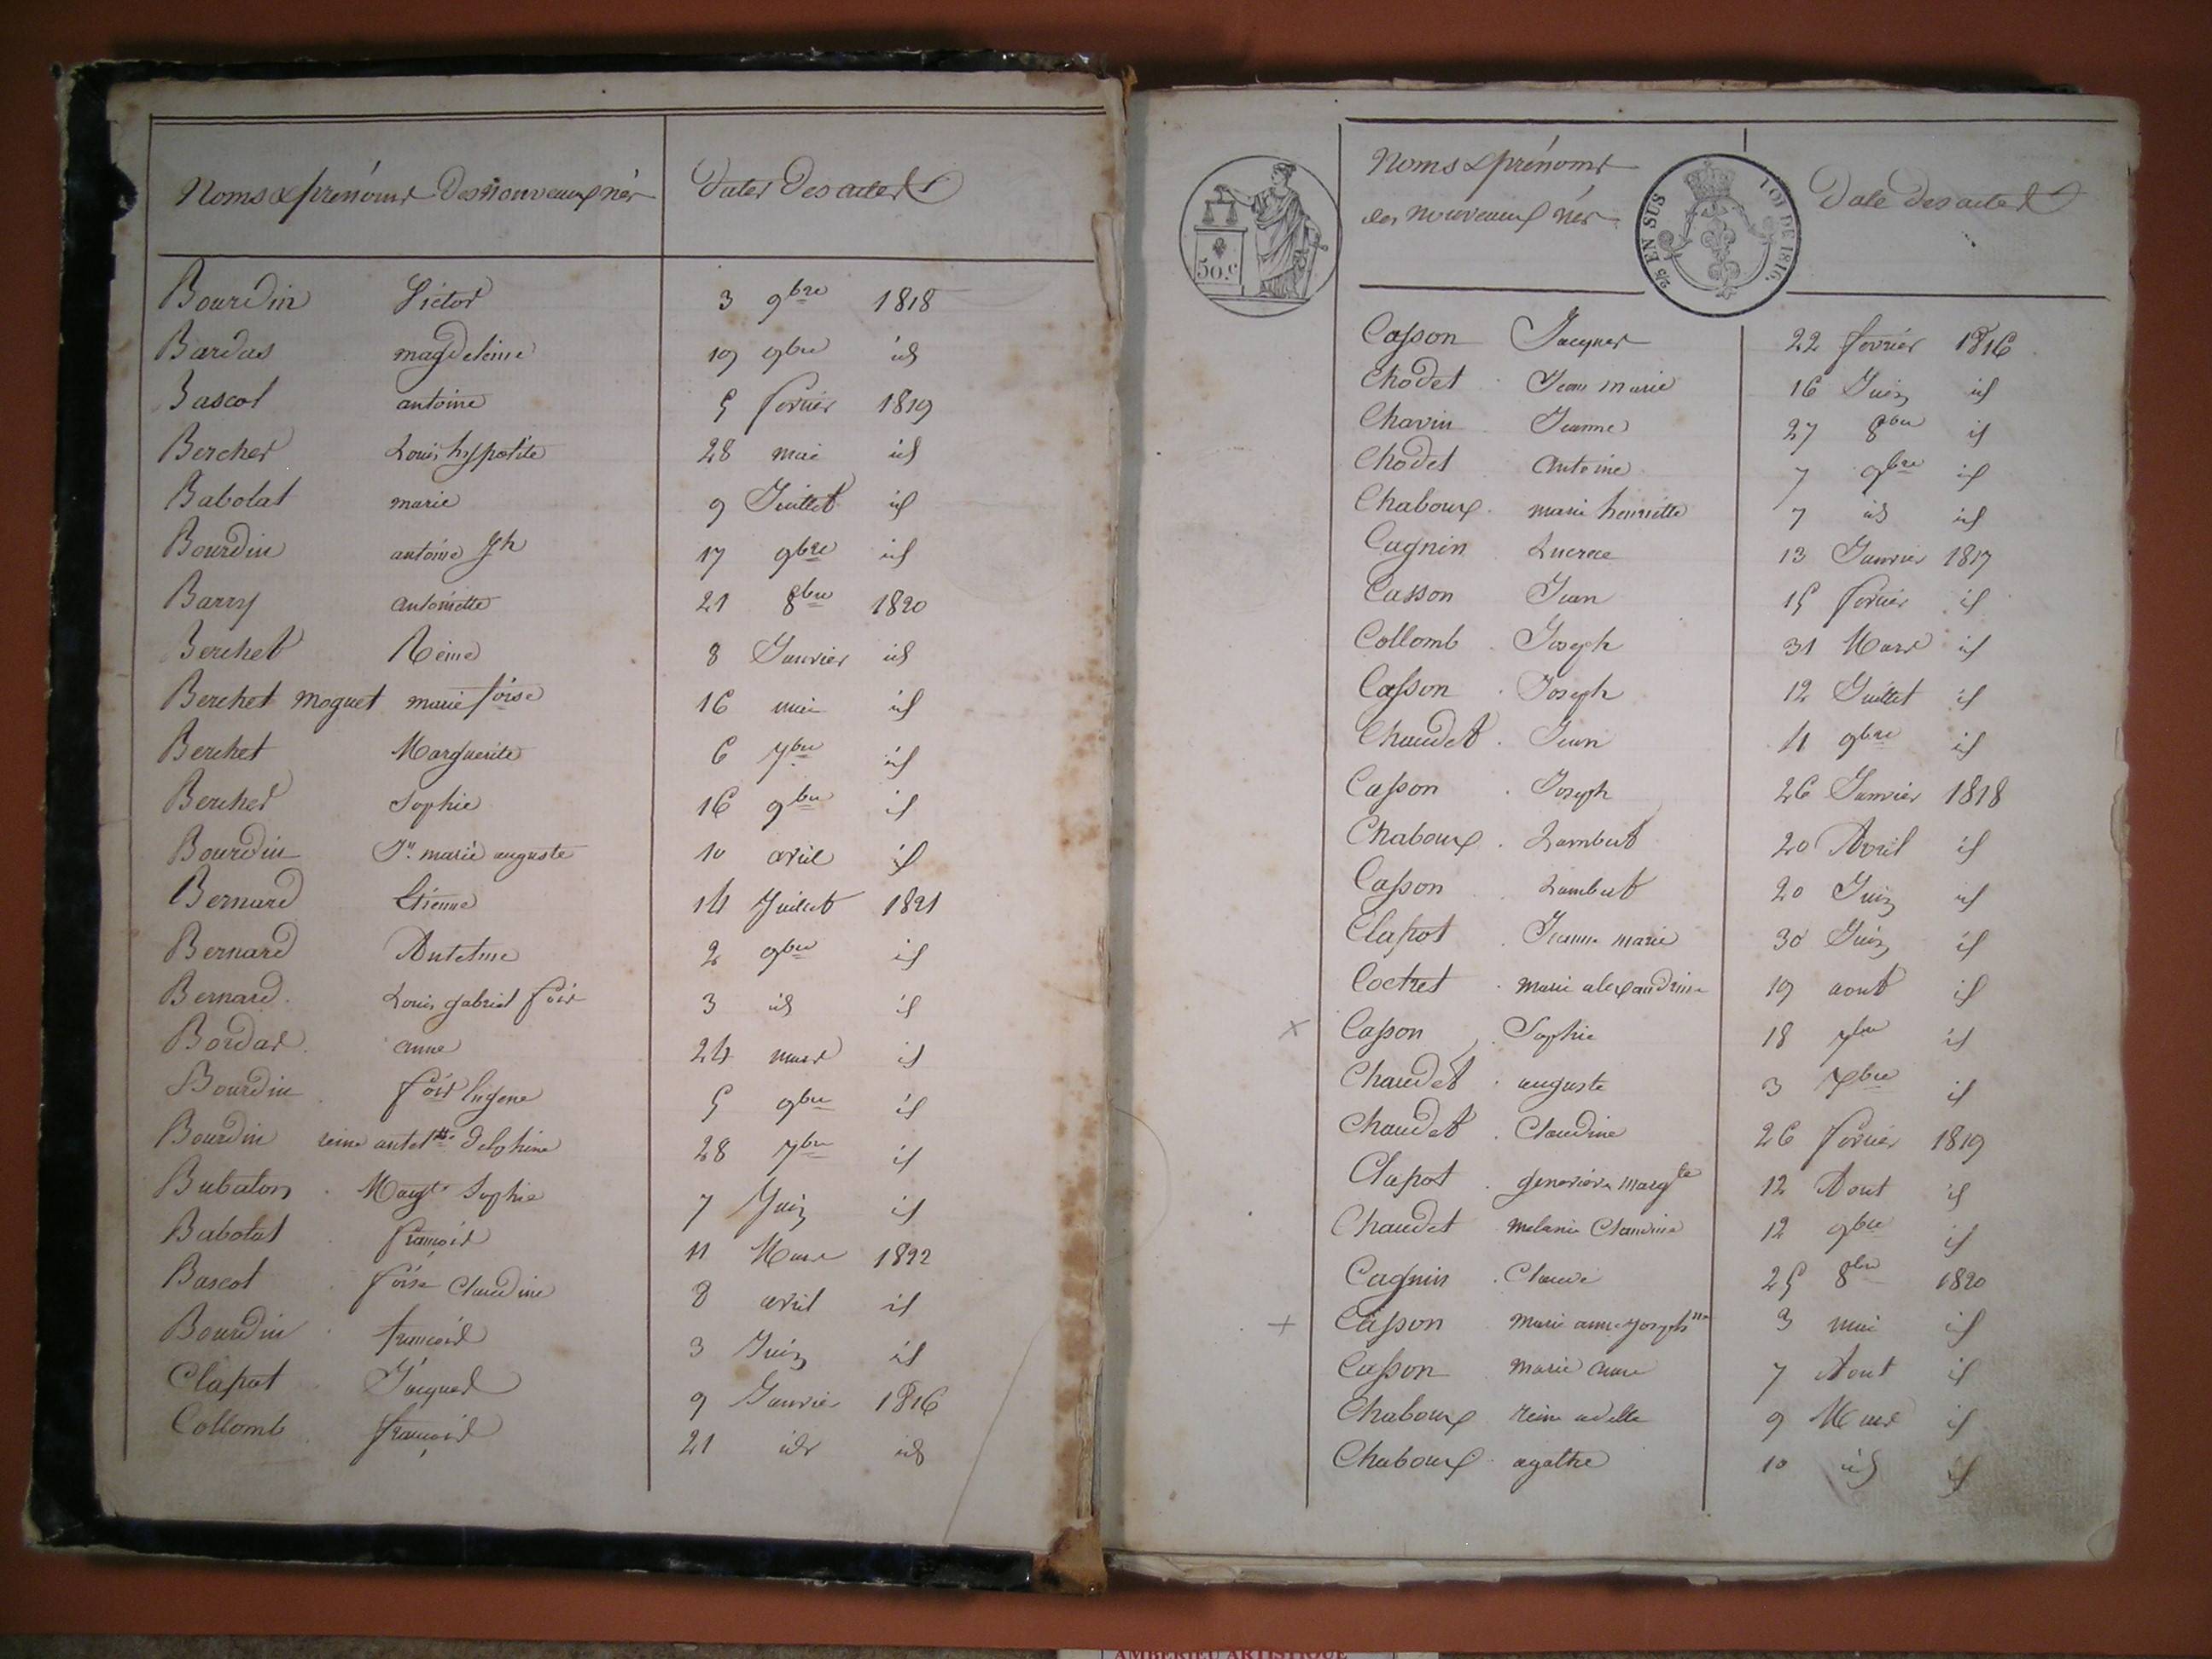 Noms & prénoms Des Nouveaux nés Dates Des actes
Bourdin Victor 3 9bre 1818
Bardas magdeleine 19 9bre id
Bascot antoine 5 fevrier 1819
Bercher Louis hyppolite 28 mai id
Babolat marie 9 Juillet id
Bourdin antoine Jh 17 9bre id
Barry antoinette 21 8bre 1820
Berchet Reine 8 Janvier id
Berchet Moguet marie foise 16 mai id
Berchet Marguerite 6 7bre id
Bercher Sophie 16 9bre id
Bourdin Jn marie auguste 10 avril id
Bernard Etienne 14 Juillet 1821
Bernard Antelme 2 9bre id
Bernard Louis gabriel fois 3 id id
Bordas anne 24 mars id
Bourdin fois Eugene 5 9bre id
Bourdin reine antetts Delphine 28 7bre id
Bubaton Margte Sophie 7 Juin id
Babolat françois 11 Mars 1822
Bascot foise Claudine 8 avril id
Bourdin françois 3 Juin id
Clapot Jacques 9 Janvier 1816
Collomb françois 21 id id
Noms & prénoms
des Nouveaux nés
Date Des actes
50.c
2/5 EN SUS
LOI DE 1816.
Casson Jacques 22 fevrier 1816
Chodet Jean marie 16 Juin id
Chavin Jeanne 27 8bre id
Chodet Antoine 7 9bre id
Chaboux marie henriette 7 id id
Cagnin Lucrece 13 Janvier 1817
Casson Jean 15 fevrier id
Collomb Joseph 31 Mars id
Casson Joseph 12 Juillet id
Chaudet Jean 11 9bre id
Casson Joseph 26 Janvier 1818
Chaboux Lambert 20 Avril id
Casson Lambert 20 Juin id
Clapot Jeanne marie 30 Juin id
Coctret marie alexandrine 19 aout id
× Casson Sophie 18 7bre id
Chaudet auguste 3 7bre id
Chaudet Claudine 26 fevrier 1819
Clapot genevieve margte 12 Aout id
Chaudet melanie Claudine 12 9bre id
Cagnin Claude 25 8bre 1820
+ Casson Marie anne Josephne 3 mai id
Casson Marie anne 7 Aout id
Chaboux reine adelle 9 Mars id
Chaboux agathe 10 id id
AMBERIEU ARTISTIQUE